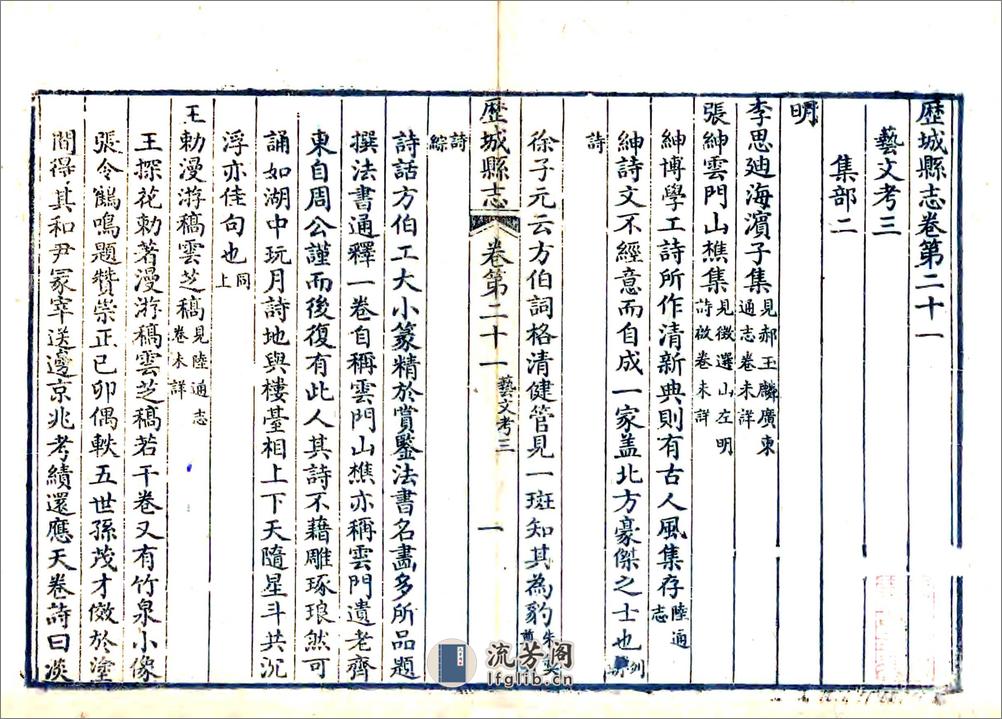 歷城縣志卷第二十一
藝文考三
集部二
明
李思迪海濱子集見郝玉麟廣東通志卷未詳
張紳雲門山樵集見徵選山左明詩啟卷未詳
紳博學工詩所作清新典則有古人風集存陸通志
紳詩文不經意而自成一家盖北方豪傑之士也列
詩
徐子元云方伯詞格清健管見一斑知其為豹
歷城縣志 卷第二十一 藝文考三 一
詩綜
詩話方伯工大小篆精於賞鑒法書名畵多所品題
撰法書通釋一卷自稱雲門山樵亦稱雲門遺老齊
東自周公謹而後復有此人其詩不藉雕琢琅然可
誦如湖中玩月詩地與樓臺相上下天隨星斗共沉
浮亦佳句也同上
王勅漫游稿雲芝稿見陸通志卷未詳
王探花勅著漫游稿雲芝稿若干卷又有竹泉小像
張令鶴鳴題贊崇正己卯偶軼五世孫茂才傚於塗
間得其和尹冡宰送邊京兆考績還應天卷詩曰淡
流芳阁
lfglib.cn